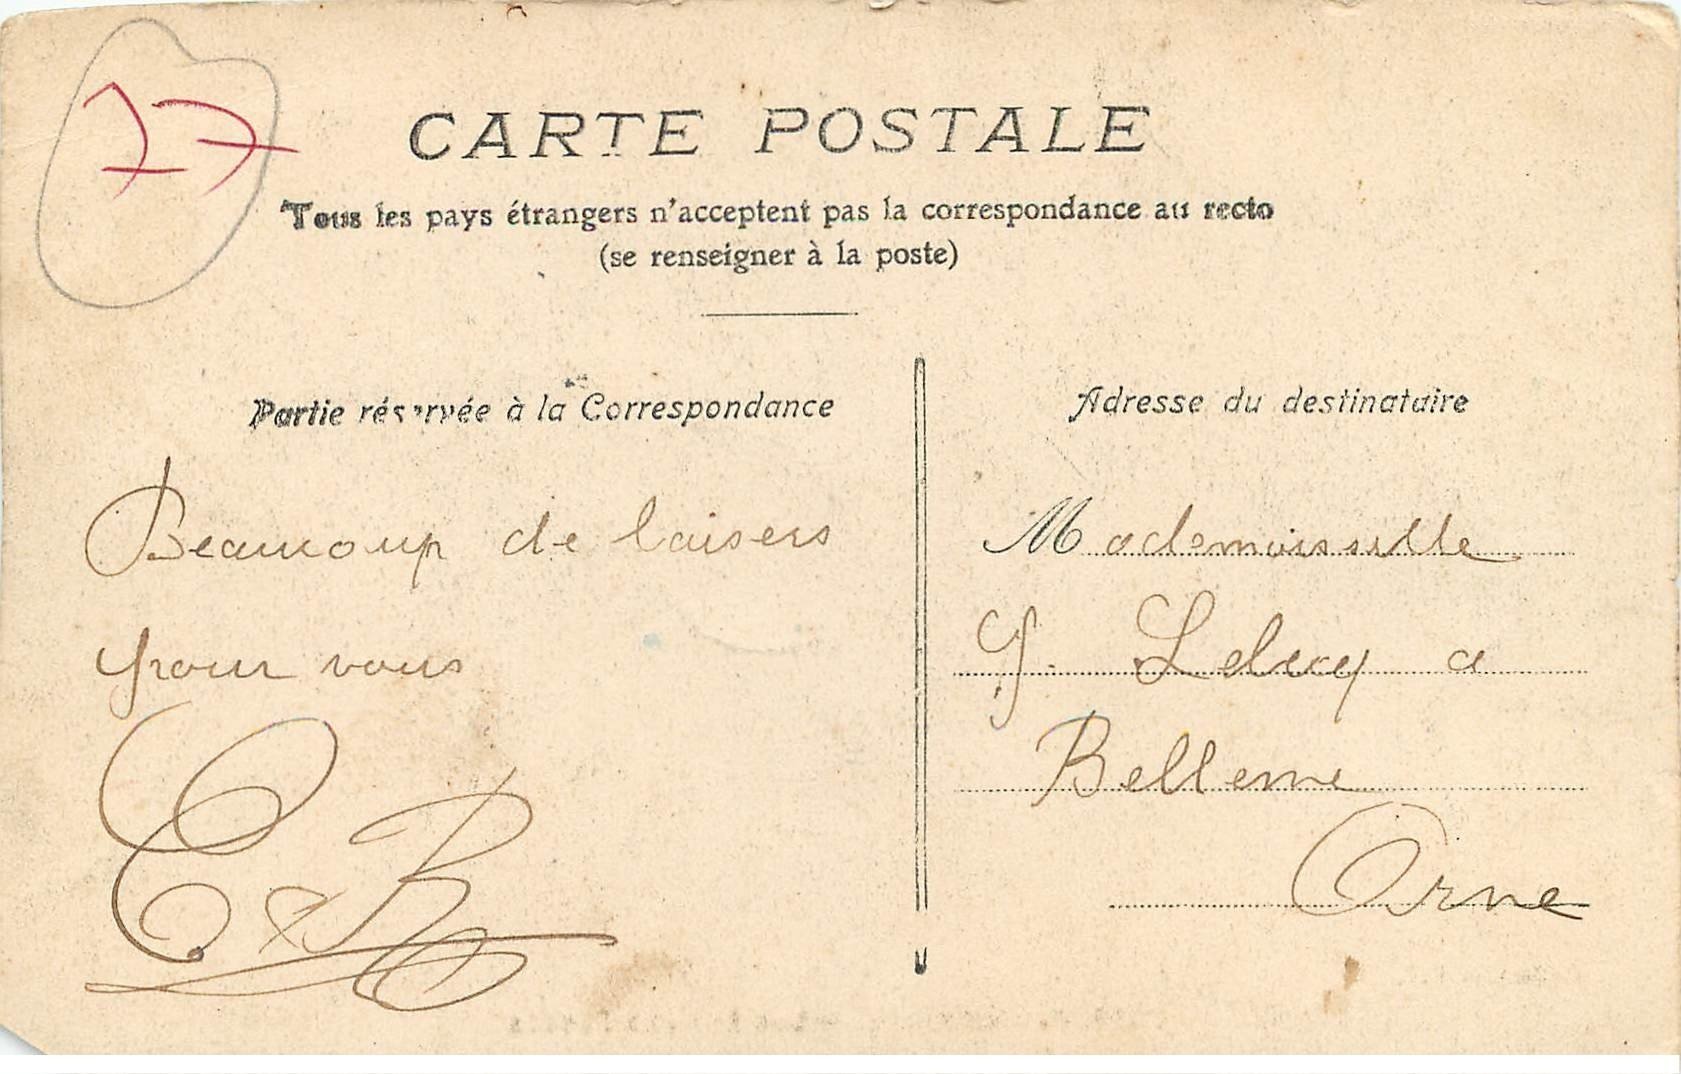 77
CARTE POSTALE
Tous les pays étrangers n'acceptent pas la correspondance au recto
(se renseigner à la poste)
Partie réservée à la Correspondance
Beaucoup de baisers
pour vous
Adresse du destinataire
Mademoiselle
a
Belleme
Orne